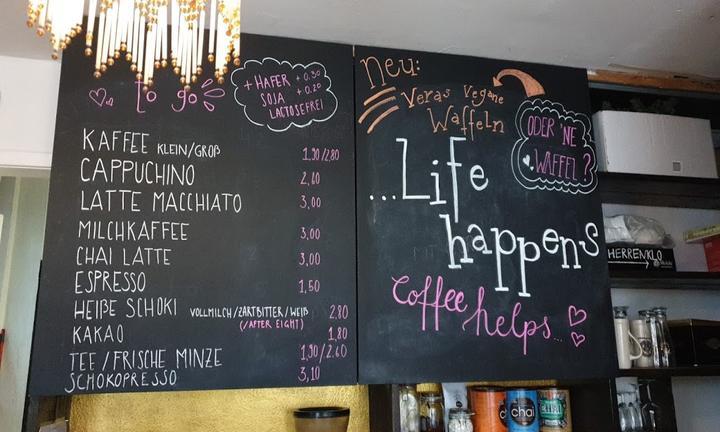 to go
+ HAFER + 0.30
SOJA + 0.20
LACTOSEFREI
KAFFEE KLEIN/GROß 1,90/2,80
CAPPUCHINO 2,80
LATTE MACCHIATO 3,00
MILCHKAFFEE 3,00
CHAI LATTE 3,00
ESPRESSO 1,50
HEIßE SCHOKI VOLLMILCH/ZARTBITTER/WEIß 2,80
(/AFTER EIGHT)
KAKAO 1,80
TEE / FRISCHE MINZE 1,90/2.60
SCHOKOPRESSO 3,10
Neu:
Veras Vegane
Waffeln
ODER 'NE
WAFFEL ?
...Life
happens
Coffee
helps...
HERRENKLO
chai